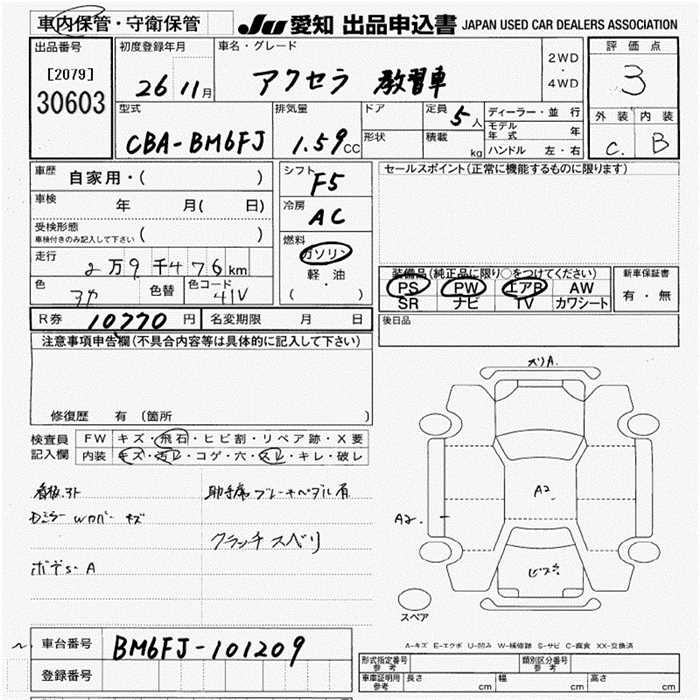 車内保管・守衛保管 JU 愛知 出品申込書 JAPAN USED CAR DEALERS ASSOCIATION
出品番号 初度登録年月 車名・グレード 2WD・4WD 評価点
[2079] 30603 26 11月 アクセラ 教習車 3
型式 排気量 ドア 定員 5人 ディーラー・並行 外装 内装
CBA-BM6FJ 1.59CC 形状 積載 kg モデル年式 年 C. B
ハンドル 左・右
車歴 自家用・( ) シフト F5 セールスポイント(正常に機能するものに限ります)
車検 年 月( 日) 冷房 AC
受検形態 車検付きのみ記入して下さい ( ) 燃料 ガソリン
走行 2万9千476km 軽・油 装備品(純正品に限り○をつけてください) 新車保証書
色 色替 色コード 41V ( ・ ) PS PW エアB AW 有・無
SR ナビ TV カワシート
R券 10770円 名変期限 月 日 後日品
注意事項申告欄(不具合内容等は具体的に記入して下さい)
修復歴 有 (箇所
検査員記入欄 FW キズ・飛石・ヒビ割・リペア跡・X要
内装 キズ・汚レ・コゲ・穴・スレ・キレ・破レ
助手席ブレーキペダル有
クラッチスベリ
A2
A2
スペア
A-キズ E-エクボ U-凹み W-補修跡 S-サビ C-腐食 XX-交換済
車台番号 BM6FJ-101209
登録番号
型式指定番号 参考 類別区分番号 参考
車庫証明用 参考 長さ cm 幅 cm 高さ cm